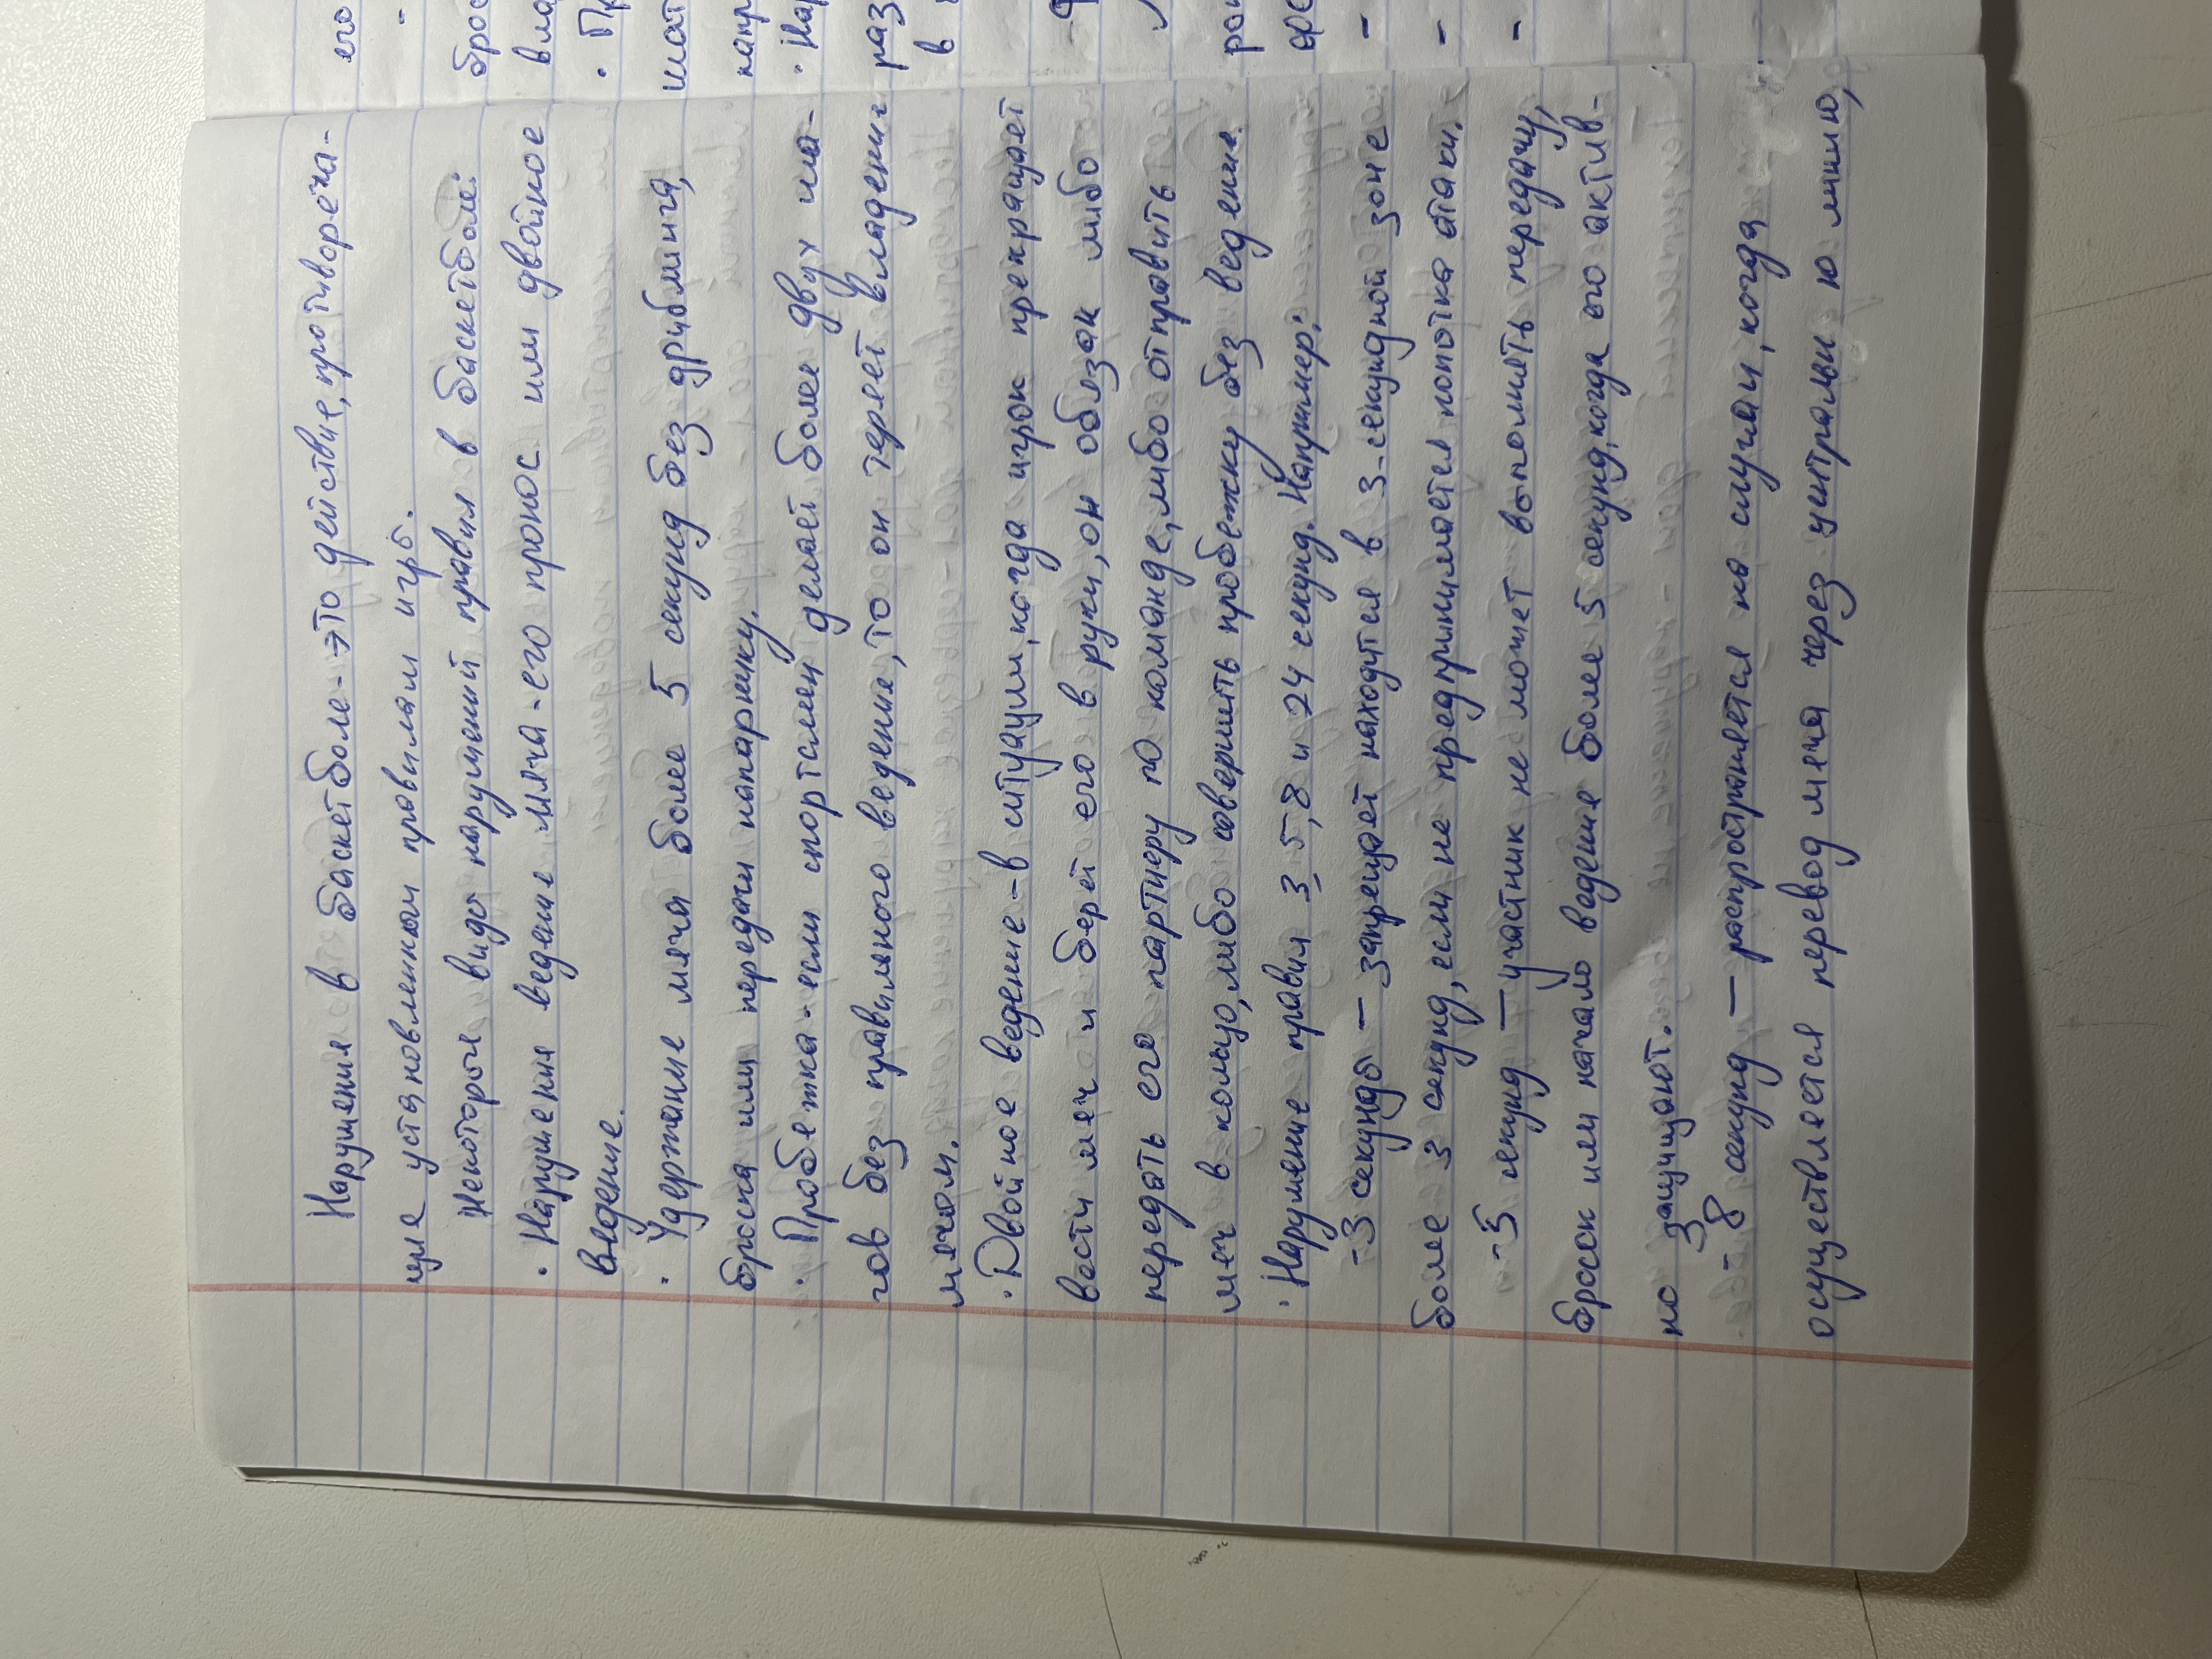 Нарушения в баскетболе - это действие, противореча-
щие установленным правилам игры.
Некоторые виды нарушений правил в баскетболе:
· Нарушения ведение мяча - его пронос или двойное
ведение.
· Удержание мяча более 5 секунд без дриблинга,
броска или передачи напарнику.
· Пробежка - если спортсмен делает более двух ша-
гов без правильного ведение, то он теряет владение
мячом.
· Двойное ведение - в ситуации, когда игрок прекращает
вести мяч и берет его в руки, он обязан либо
передать его партнеру по команде, либо отправить
мяч в кольцо, либо совершить пробежку без ведение.
· Нарушение правил 3, 5, 8 и 24 секунд. Например:
-3 секунды — запрещает находится в 3-секундной зоне
более 3 секунд, если не предпринимается попытка атаки.
-5 секунд — участник не может выполнять передачу,
бросок или начало ведение более 5 секунд, когда его актив-
но защищают.
-8 секунд — распространяется на случаи, когда
осуществляется перевод мяча через центральную линию,
его
-
брос
вла
· Пр
шат
напр
· Нар
раз
в
рои
-
-
-